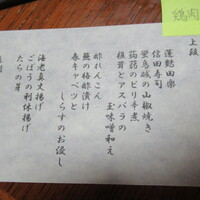 鶏肉
上段
蓮麩田楽
信田寿司
蛍烏賊の山椒焼き
蒟蒻のピリ辛煮
椎茸とアスパラの
玉味噌和え
酢れんこん
蕪の梅酢漬け
春キャベツと
しらすのお浸し
海老真丈揚げ
ごぼうの利休揚げ
たらの芽